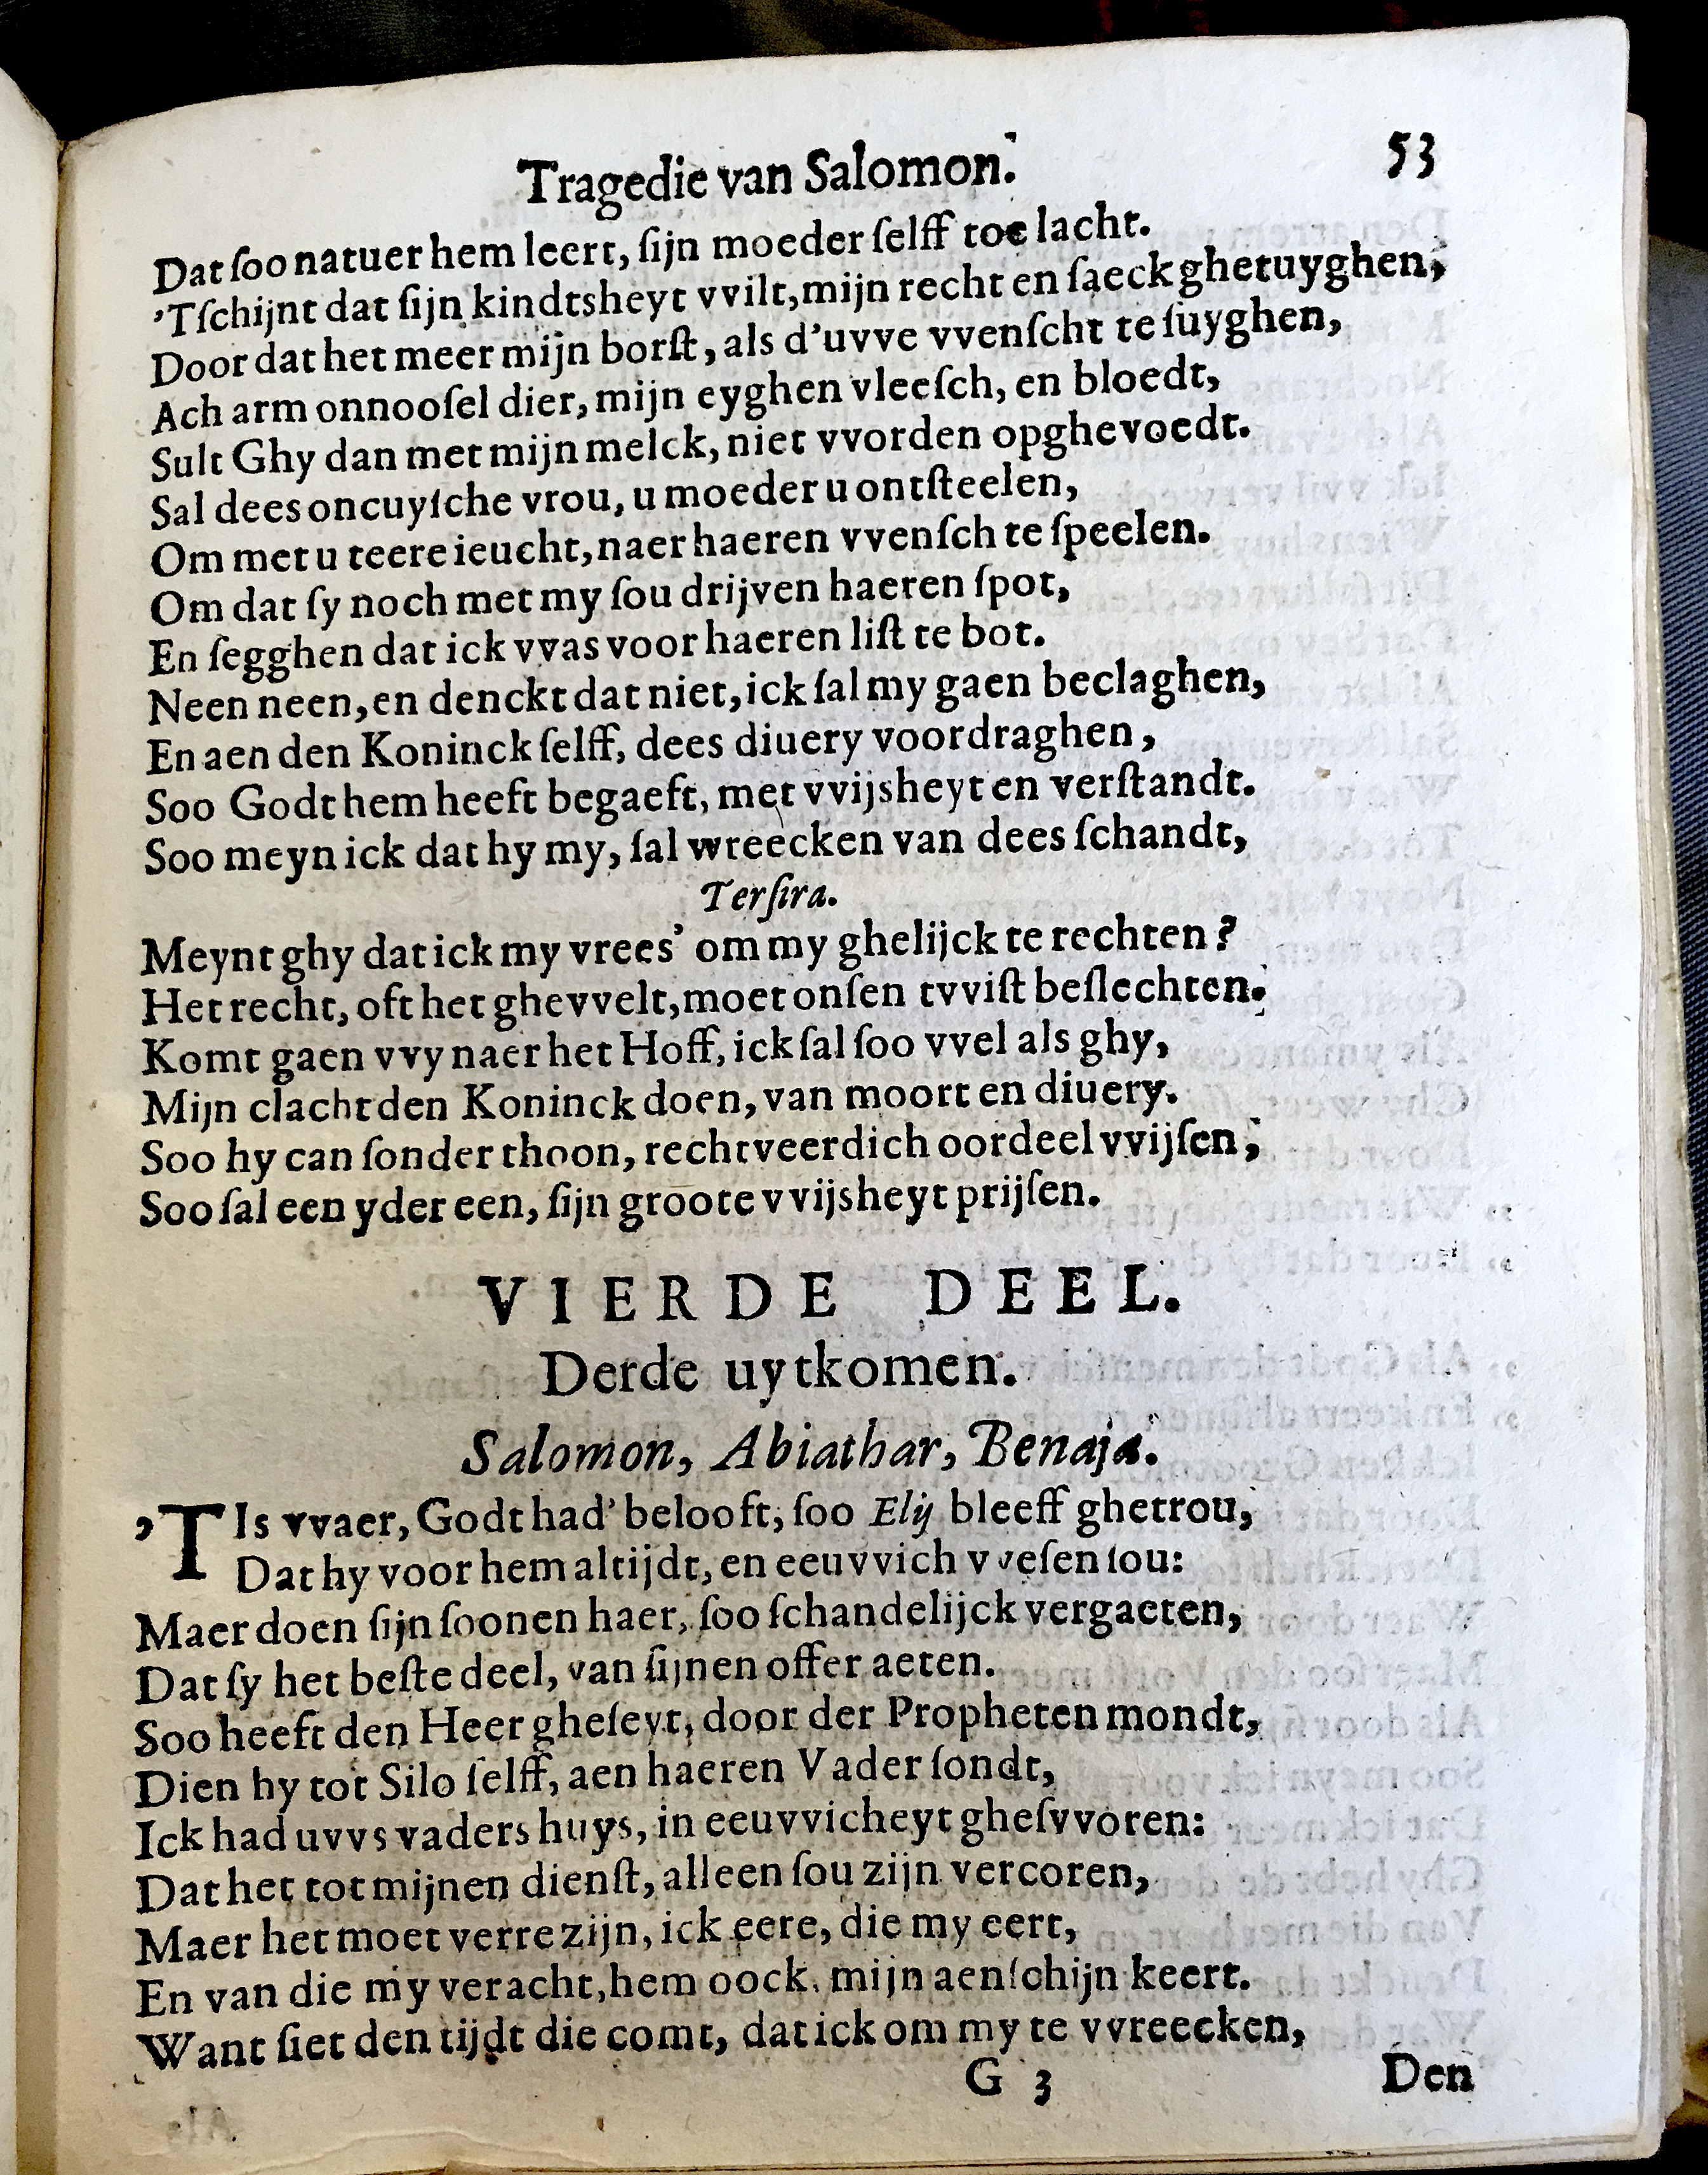 Tragedie van Salomon. 53
Dat ſoo natuer hem leert, ſijn moeder ſelff toe lacht.
’Tſchijnt dat ſijn kindtsheyt vvilt, mijn recht en ſaeck ghetuyghen,
Door dat het meer mijn borſt, als d’uvve vvenſcht te ſuyghen,
Ach arm onnooſel dier, mijn eyghen vleeſch, en bloedt,
Sult Ghy dan met mijn melck, niet vvorden opghevoedt.
Sal dees oncuyſche vrou, u moeder u ontſteelen,
Om met u teere ieucht, naer haeren vvenſch te ſpeelen.
Om dat ſy noch met my ſou drijven haeren ſpot,
En ſegghen dat ick vvas voor haeren liſt te bot.
Neen neen, en denckt dat niet, ick ſal my gaen beclaghen,
En aen den Koninck ſelff, dees diuery voordraghen,
Soo Godt hem heeft begaeft, met vvijsheyt en verſtandt.
Soo meyn ick dat hy my, ſal wreecken van dees ſchandt,
Terſira.
Meynt ghy dat ick my vrees’ om my ghelijck te rechten?
Het recht, oft het ghevvelt, moet onſen tvviſt beſlechten.
Komt gaen vvy naer het Hoff, ick ſal ſoo vvel als ghy,
Mijn clacht den Koninck doen, van moort en diuery.
Soo hy can ſonder thoon, rechtveerdich oordeel vvijſen,
Soo ſal een yder een, ſijn groote vvijsheyt prijſen.
VIERDE DEEL.
Derde uytkomen.
Salomon, Abiathar, Benaja.
’T Is vvaer, Godt had’ belooft, ſoo Elij bleeff ghetrou,
Dat hy voor hem altijdt, en eeuvvich vveſen ſou:
Maer doen ſijn ſoonen haer, ſoo ſchandelijck vergaeten,
Dat ſy het beſte deel, van ſijnen offer aeten.
Soo heeft den Heer gheſeyt, door der Propheten mondt,
Dien hy tot Silo ſelff, aen haeren Vader ſondt,
Ick had uvvs vaders huys, in eeuvvicheyt gheſvvoren:
Dat het tot mijnen dienſt, alleen ſou zijn vercoren,
Maer het moet verre zijn, ick eere, die my eert,
En van die my veracht, hem oock, mijn aenſchijn keert.
Want ſiet den tijdt die comt, dat ick om my te vvreecken,
G 3 Den